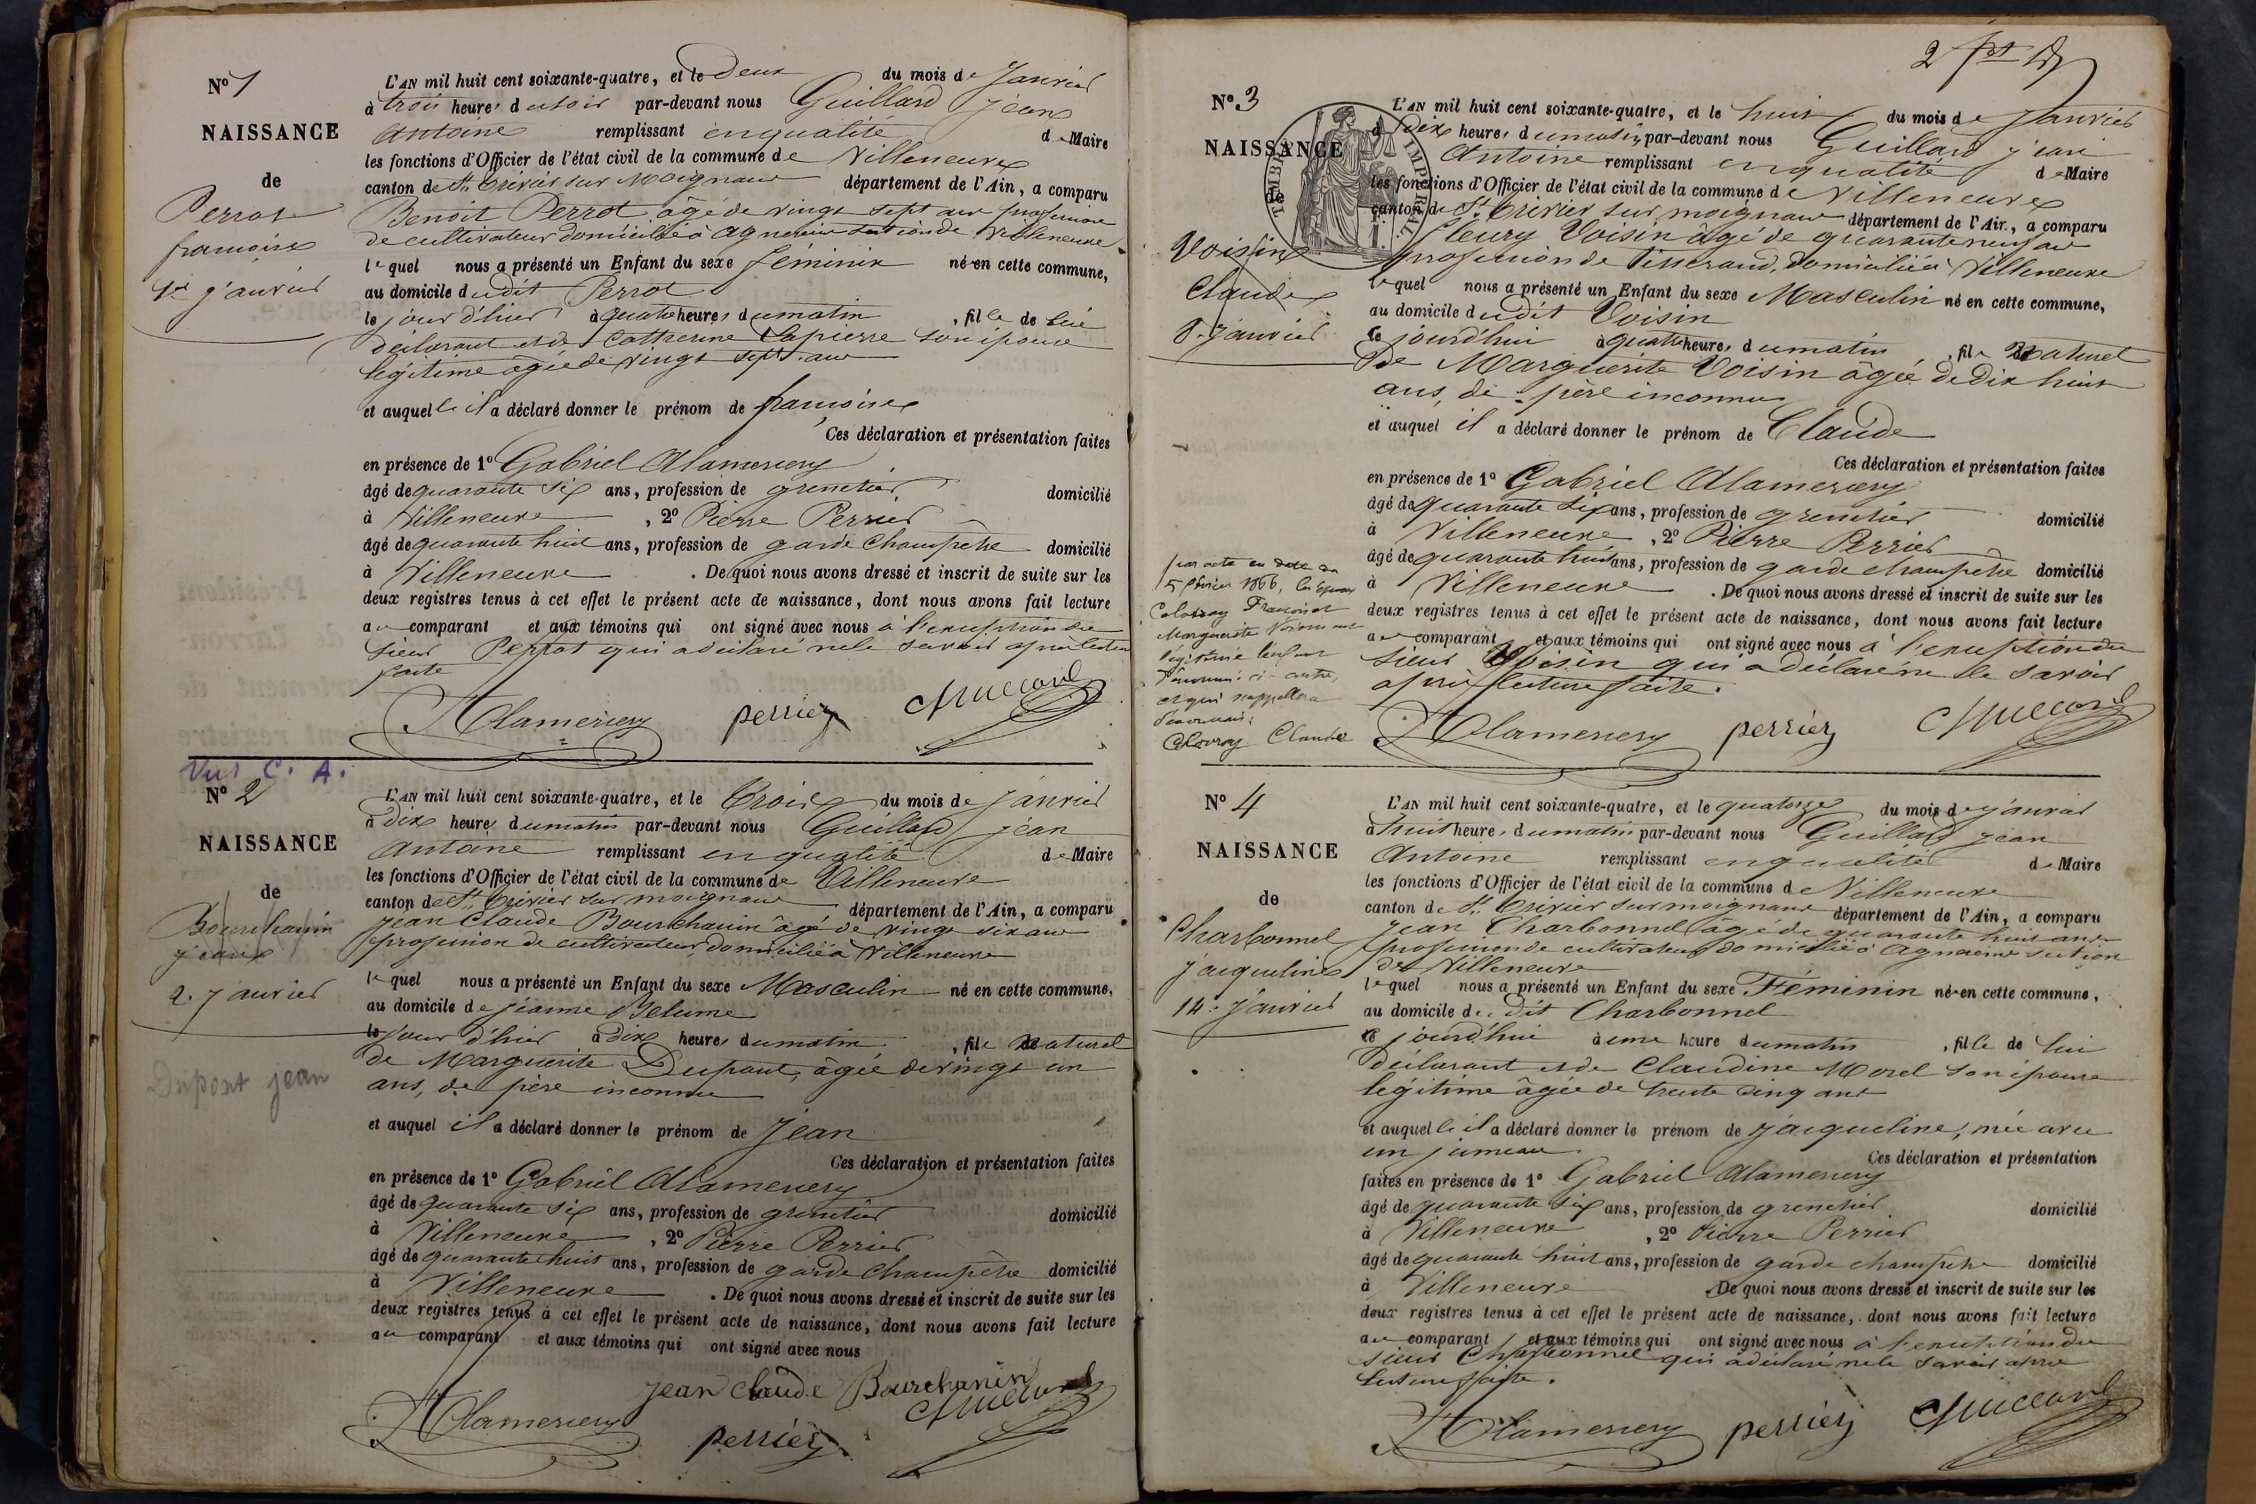 N° 1
NAISSANCE
de
Perrot
françoise
1er janvier
L'AN mil huit cent soixante-quatre, et le deux du mois de Janvier
à trois heures du soir par-devant nous Guillard jean
Antoine remplissant en qualité de Maire
les fonctions d'Officier de l'état civil de la commune de Villeneuve
canton de St. Trivier sur Moignans département de l'Ain, a comparu
Benoit Perrot âgé de vingt sept ans profession
de cultivateur domicilié à Agnereins section de Villeneuve
lequel nous a présenté un Enfant du sexe féminin né en cette commune,
au domicile dudit Perrot
le jour d'hier à quatre heures du matin, fille de lui
déclarant et de Catherine Lapierre son épouse
légitime âgée de vingt sept ans
et auquelle il a déclaré donner le prénom de françoise
Ces déclaration et présentation faites
en présence de 1° Gabriel Alamercery
âgé de quarante six ans, profession de grenetier domicilié
à Villeneuve, 2° Pierre Perrier
âgé de quarante huit ans, profession de garde champêtre domicilié
à Villeneuve. De quoi nous avons dressé et inscrit de suite sur les
deux registres tenus à cet effet le présent acte de naissance, dont nous avons fait lecture
au comparant et aux témoins qui ont signé avec nous à l'exception du
sieur Perrot qui a déclaré ne le savoir après lecture
faite
Alamercery perrier Guillard
Vu C. A.
N° 2
NAISSANCE
de
Bourchanin
jean
2. janvier
Dupont jean
L'AN mil huit cent soixante-quatre, et le Trois du mois de janvier
à Dix heures du matin par-devant nous Guillard jean
Antoine remplissant en qualité de Maire
les fonctions d'Officier de l'état civil de la commune de Villeneuve
canton de St. Trivier sur moignans département de l'Ain, a comparu
jean Claude Bourchanin âgé de vingt six ans
profession de cultivateur, domicilié à Villeneuve
lequel nous a présenté un Enfant du sexe Masculin né en cette commune,
au domicile de jeanne Belume
le jour d'hier à dix heures du matin, fils naturel
de Marguerite Dupont, âgée de vingt un
ans, de père inconnu
et auquel il a déclaré donner le prénom de Jean
Ces déclaration et présentation faites
en présence de 1° Gabriel Alamercery
âgé de quarante six ans, profession de grenetier domicilié
à Villeneuve, 2° Pierre Perrier
âgé de quarante huit ans, profession de garde champêtre domicilié
à Villeneuve. De quoi nous avons dressé et inscrit de suite sur les
deux registres tenus à cet effet le présent acte de naissance, dont nous avons fait lecture
au comparant et aux témoins qui ont signé avec nous
jean claude Bourchanin
Alamercery perrier Guillard
2
N° 3
NAISSANCE
de
TIMBRE IMPÉRIAL
Voisin
Claude
8. janvier
par acte en date du
5 février 1866, les époux
Colovray François et
Marguerite Voisin ont
légitimé l'enfant
dénommé ci-contre,
et qui s'appellera
désormais:
Colovray Claude
L'AN mil huit cent soixante-quatre, et le huit du mois de Janvier
à Dix heures du matin, par-devant nous Guillard jean
Antoine remplissant en qualité de Maire
les fonctions d'Officier de l'état civil de la commune de Villeneuve
canton de St. Trivier sur moignans département de l'Ain, a comparu
fleury Voisin âgé de quarante neuf ans
profession de Tisserand, domicilié à Villeneuve
lequel nous a présenté un Enfant du sexe Masculin né en cette commune,
au domicile dudit Voisin
le jourd'hui à quatre heures du matin, fils naturel
de Marguerite Voisin âgée de dix huit
ans, de père inconnu
et auquel il a déclaré donner le prénom de Claude
Ces déclaration et présentation faites
en présence de 1° Gabriel Alamercery
âgé de quarante six ans, profession de grenetier domicilié
à Villeneuve, 2° Pierre Perrier
âgé de quarante huit ans, profession de garde champêtre domicilié
à Villeneuve. De quoi nous avons dressé et inscrit de suite sur les
deux registres tenus à cet effet le présent acte de naissance, dont nous avons fait lecture
au comparant et aux témoins qui ont signé avec nous à l'exception du
sieur Voisin qui a déclaré ne le savoir
après lecture faite.
Alamercery perrier Guillard
N° 4
NAISSANCE
de
Charbonnel
jaqueline
14. janvier
L'AN mil huit cent soixante-quatre, et le quatorze du mois de janvier
à huit heures du matin par-devant nous Guillard jean
Antoine remplissant en qualité de Maire
les fonctions d'Officier de l'état civil de la commune de Villeneuve
canton de St. Trivier sur moignans département de l'Ain, a comparu
jean Charbonnel âgé de quarante huit ans
profession de cultivateur domicilié à Agnereins section
de Villeneuve
lequel nous a présenté un Enfant du sexe Féminin né en cette commune,
au domicile dudit Charbonnel
le jourd'hui à une heure du matin, fille de lui
déclarant et de Claudine Morel son épouse
légitime âgée de trente cinq ans
et auquelle il a déclaré donner le prénom de jaiqueline, née avec
un jumeau Ces déclaration et présentation
faites en présence de 1° Gabriel Alamercery
âgé de quarante six ans, profession de grenetier domicilié
à Villeneuve, 2° Pierre Perrier
âgé de quarante huit ans, profession de garde champêtre domicilié
à Villeneuve De quoi nous avons dressé et inscrit de suite sur les
deux registres tenus à cet effet le présent acte de naissance, dont nous avons fait lecture
au comparant et aux témoins qui ont signé avec nous à l'exception du
sieur Charbonnel qui a déclaré ne le savoir après
lecture faite.
Alamercery perrier Guillard